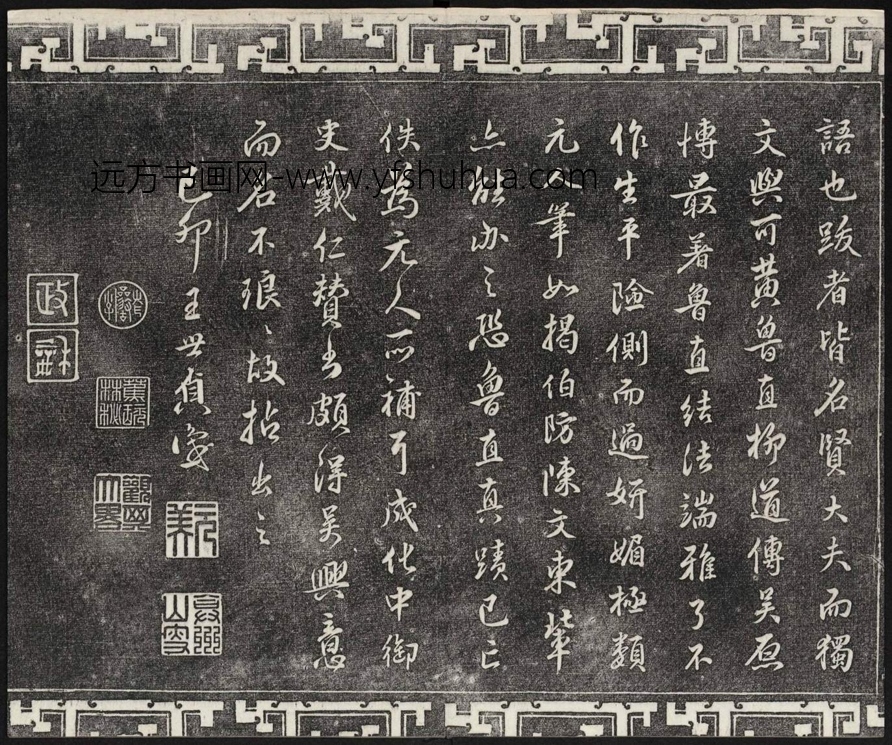 語也跋者皆名賢大夫而獨
文與可黃魯直柳道傳吳原
博最著魯直結法端雅了不
作生平險側而過妍媚極類
元筆如揭伯防陳文東輩
亦能辦之恐魯直真蹟已亡
佚為元人所補耳成化中御
史戴仁贊書頗得吳興意
而名不琅〻故拈出之
己卯王世貞識
远方书画网-www.yfshuhua.com